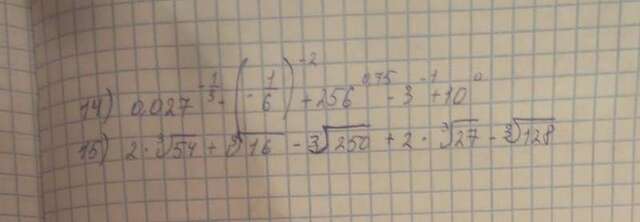 14) 0.027^{-\frac{1}{3}} - \left(-\frac{1}{6}\right)^{-2} + 256^{0.75} - 3^{-1} + 10^{0}
15) 2 \cdot \sqrt[3]{54} + \sqrt[3]{16} - \sqrt[3]{250} + 2 \cdot \sqrt[3]{27} - \sqrt[3]{128}